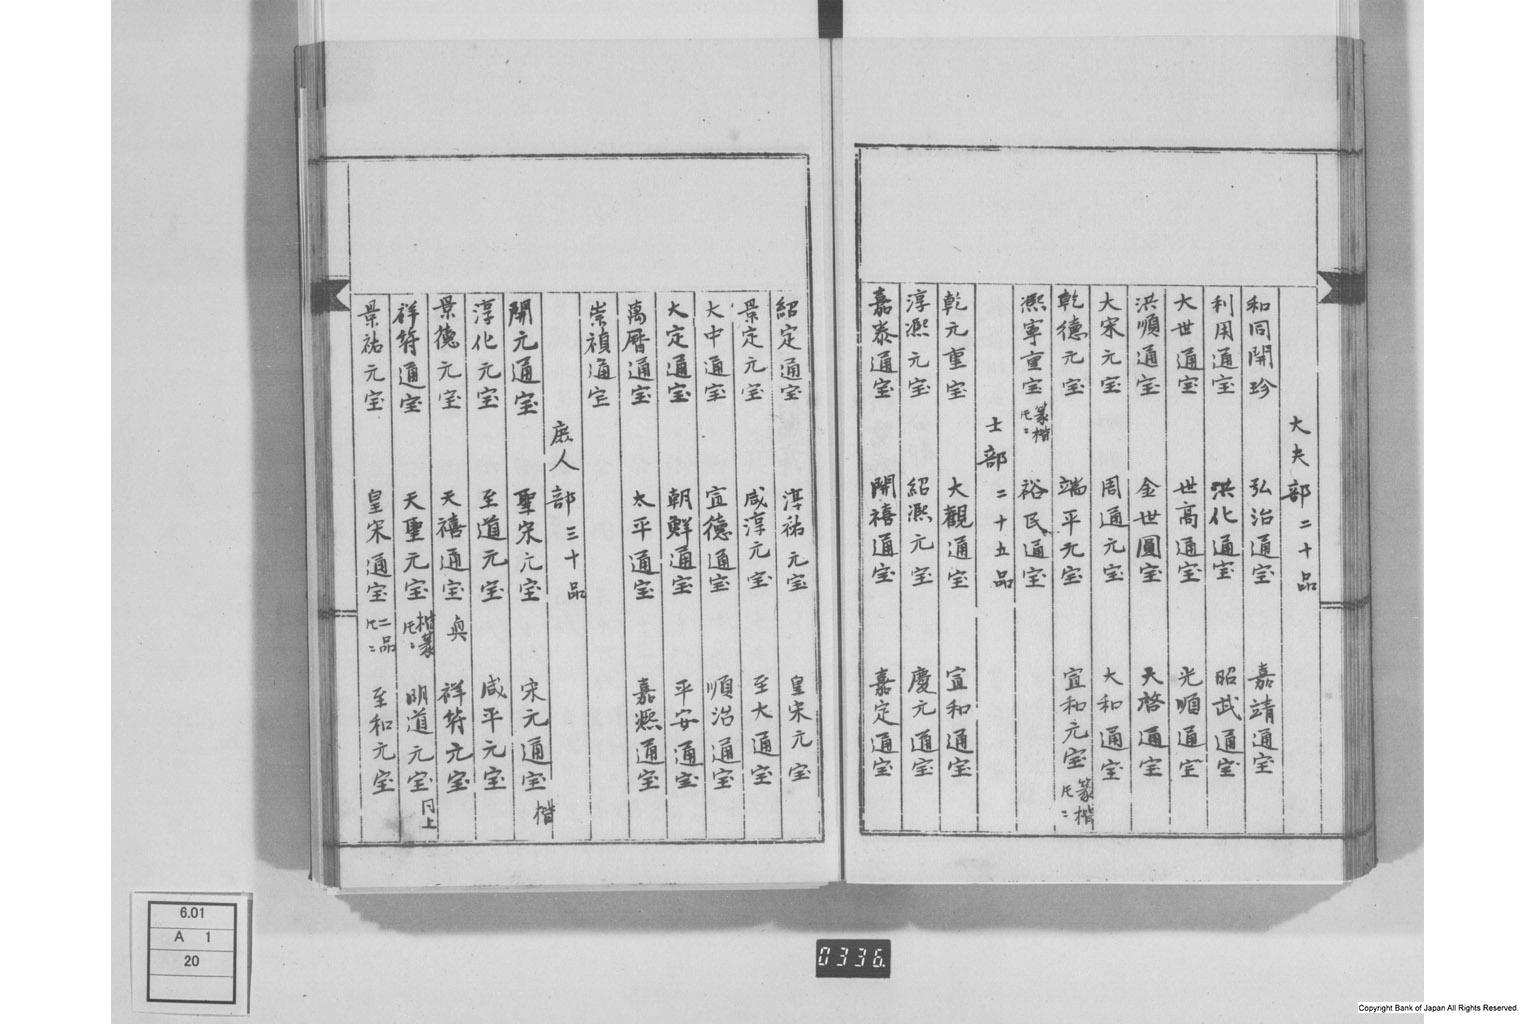 大夫部二十品
和同開珍 弘治通宝 嘉靖通宝
利用通宝 洪化通宝 昭武通宝
大世通宝 世高通宝 光順通宝
洪順通宝 金世圓宝 天啓通宝
大宋元宝 周通元宝 大和通宝
乾德元宝 端平元宝 宣和元宝 篆楷
熙寧重宝 篆楷 裕民通宝
士部二十五品
乾元重宝 大觀通宝 宣和通宝
淳熙元宝 紹熙元宝 慶元通宝
嘉泰通宝 開禧通宝 嘉定通宝
紹定通宝 淳祐元宝 皇宋元宝
景定元宝 咸淳元宝 至大通宝
大中通宝 宣德通宝 順治通宝
大定通宝 朝鮮通宝 平安通宝
萬曆通宝 太平通宝 嘉熙通宝
崇禎通宝
庶人部三十品
開元通宝 聖宋元宝 宋元通宝 楷
淳化元宝 至道元宝 咸平元宝
景德元宝 天禧通宝 真 祥符元宝
祥符通宝 天聖元宝 楷篆 明道元宝 同上
景祐元宝 皇宋通宝 二品 至和元宝
6.01
A 1
20
0336.
Copyright Bank of Japan All Rights Reserved.